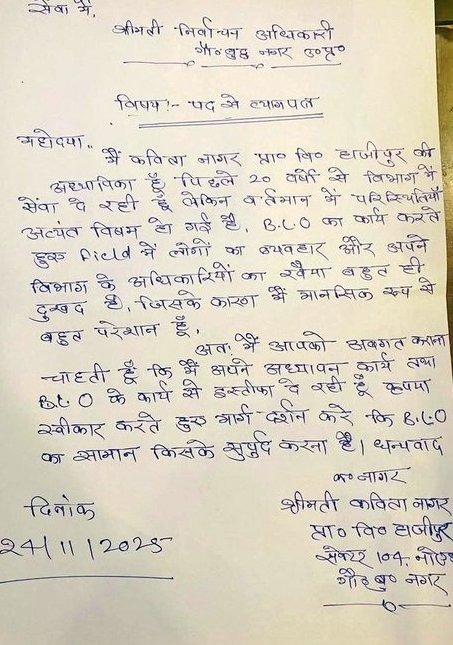 सेवा में,
श्रीमती निर्वाचन अधिकारी
गौ० बुद्ध नगर उ०प्र०
विषय:- पद से त्यागपत्र
महोदया..
मैं कविता नागर प्रा० वि० हाजीपुर की
अध्यापिका हूँ पिछले 20 वर्षों से विभाग में
सेवा दे रही हूँ लेकिन वर्तमान में परिस्थितियाँ
अत्यंत विषम हो गई है, B.L.O का कार्य करते
हुए Field में लोगों का व्यवहार और अपने
विभाग के अधिकारियों का रवैया बहुत ही
दुखद है, जिसके कारण मैं मानसिक रूप से
बहुत परेशान हूँ,
अत: मैं आपको अवगत कराना
चाहती हूँ कि मैं अपने अध्यापन कार्य तथा
B.L.O के कार्य से इस्तीफा दे रही हूँ कृपया
स्वीकार करते हुए मार्ग दर्शन करे कि B.L.O
का सामान किसके सुपुर्द करना है। धन्यवाद
क० नागर
श्रीमती कविता नागर
प्रा० वि० हाजीपुर
सेक्टर 104, नोएडा
गौ० बु० नगर
दिनांक
24/11/2025